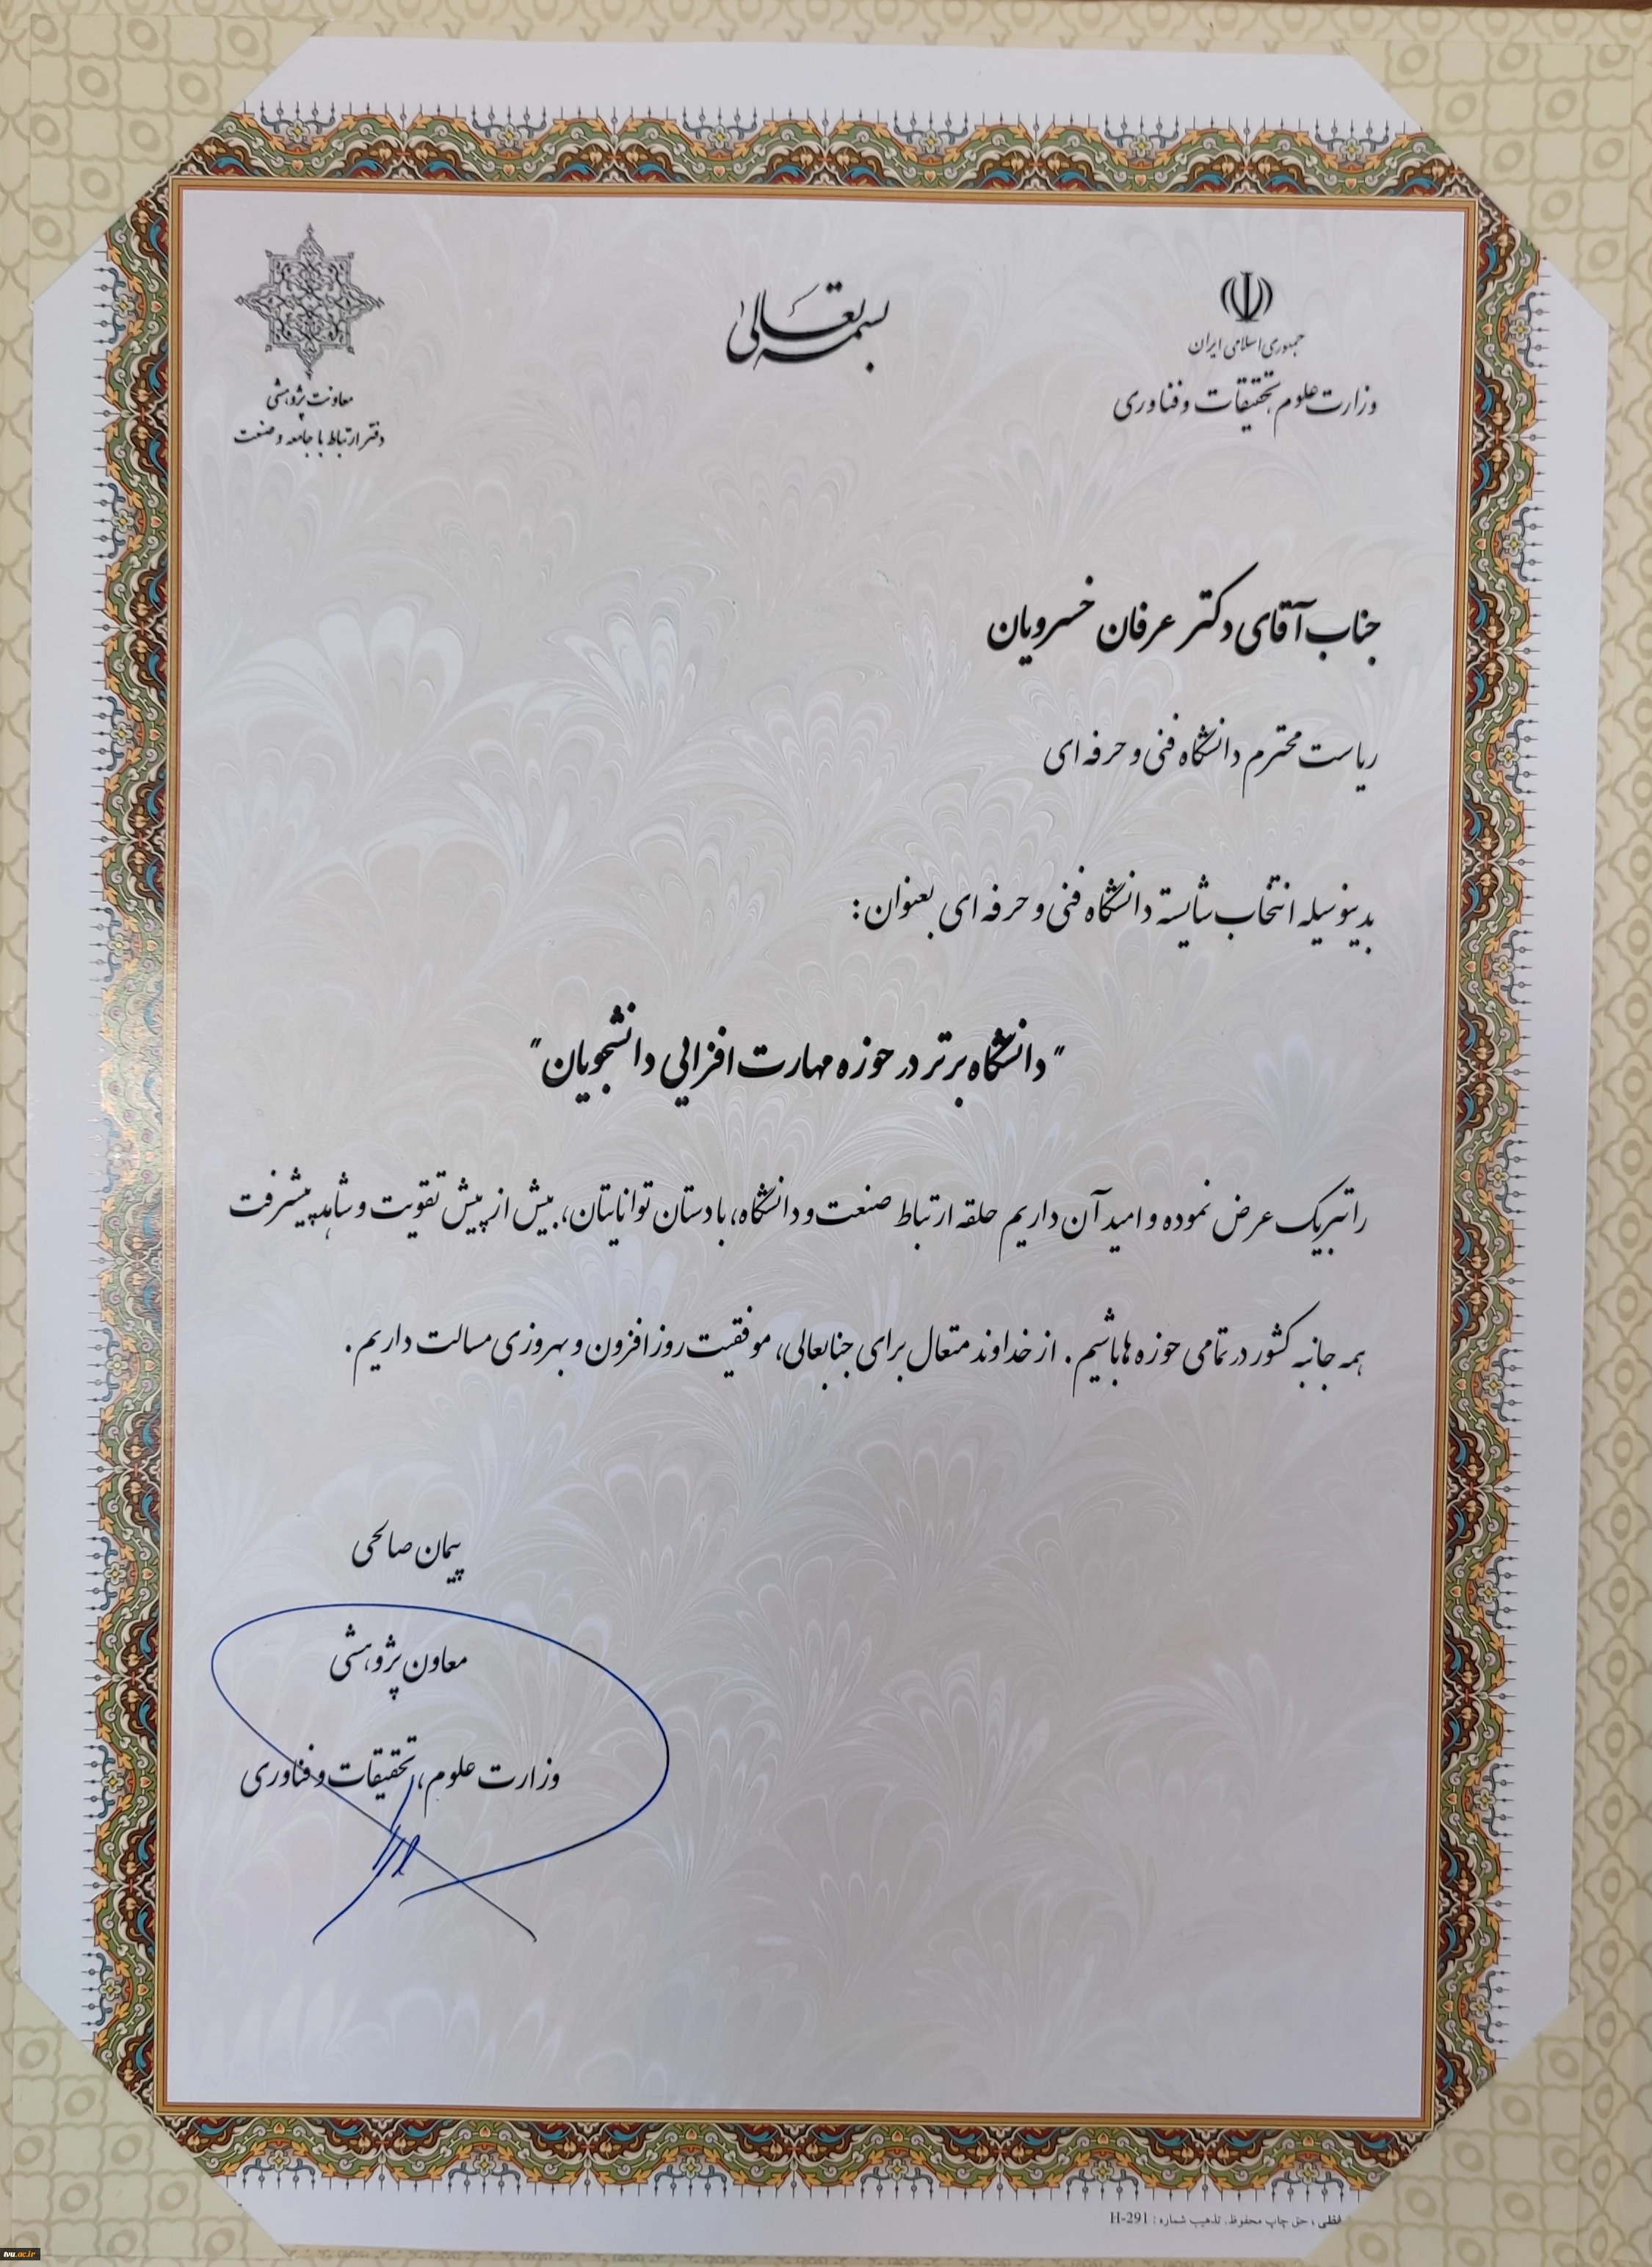 بسمه تعالی
جمهوری اسلامی ایران
وزارت علوم تحقیقات و فناوری
معاونت پژوهشی
دفتر ارتباط با جامعه و صنعت
جناب آقای دکتر عرفان خسرویان
ریاست محترم دانشگاه فنی و حرفه ای
بدینوسیله انتخاب شایسته دانشگاه فنی و حرفه ای بعنوان:
"دانشگاه برتر در حوزه مهارت افزایی دانشجویان"
را تبریک عرض نموده و امید آن داریم حلقه ارتباط صنعت و دانشگاه، با دستان توانایتان، بیش از پیش تقویت و شاهد پیشرفت
همه جانبه کشور در تمامی حوزه ها باشیم. از خداوند متعال برای جنابعالی، موفقیت روزافزون و بهروزی مسالت داریم.
پیمان صالحی
معاون پژوهشی
وزارت علوم، تحقیقات و فناوری
، حق چاپ محفوظ. تذهیب شماره: H-291
tvu.ac.ir